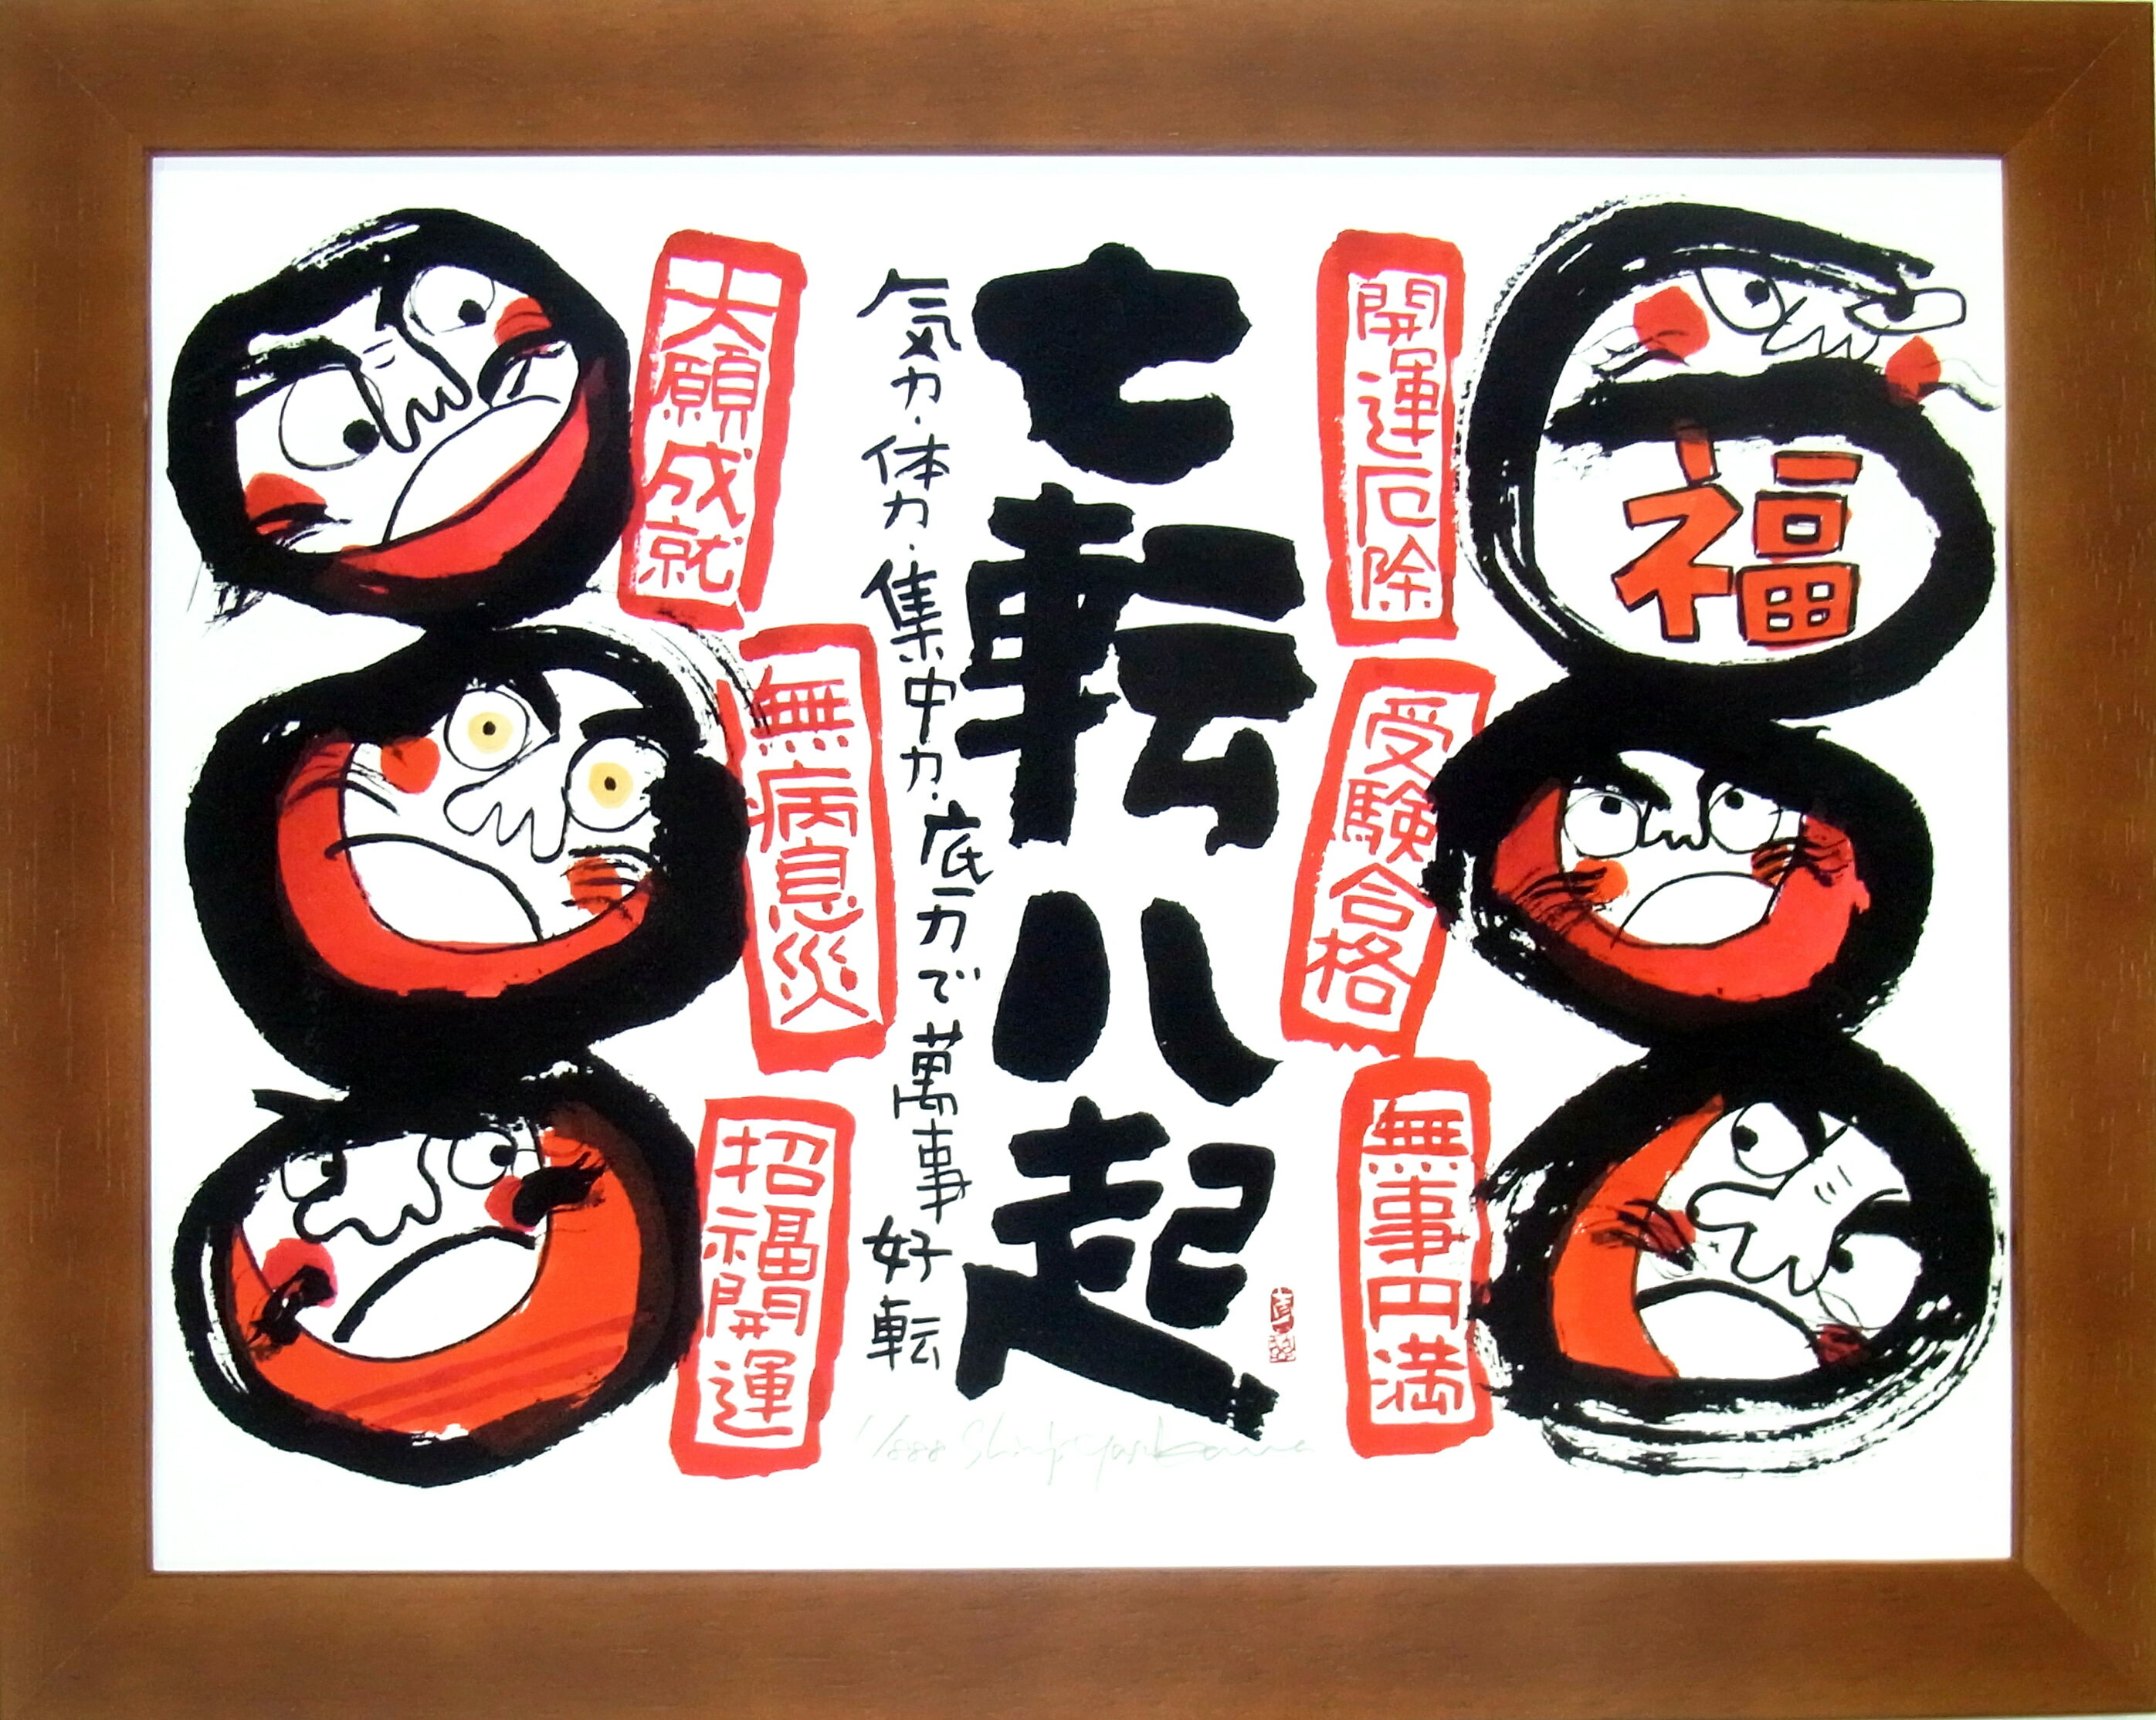 福
開運厄除
受験合格
無事円満
七転八起
気力・体力・集中力・底力で萬事好転
大願成就
無病息災
招福開運
1/888 Shinji Yoshikawa